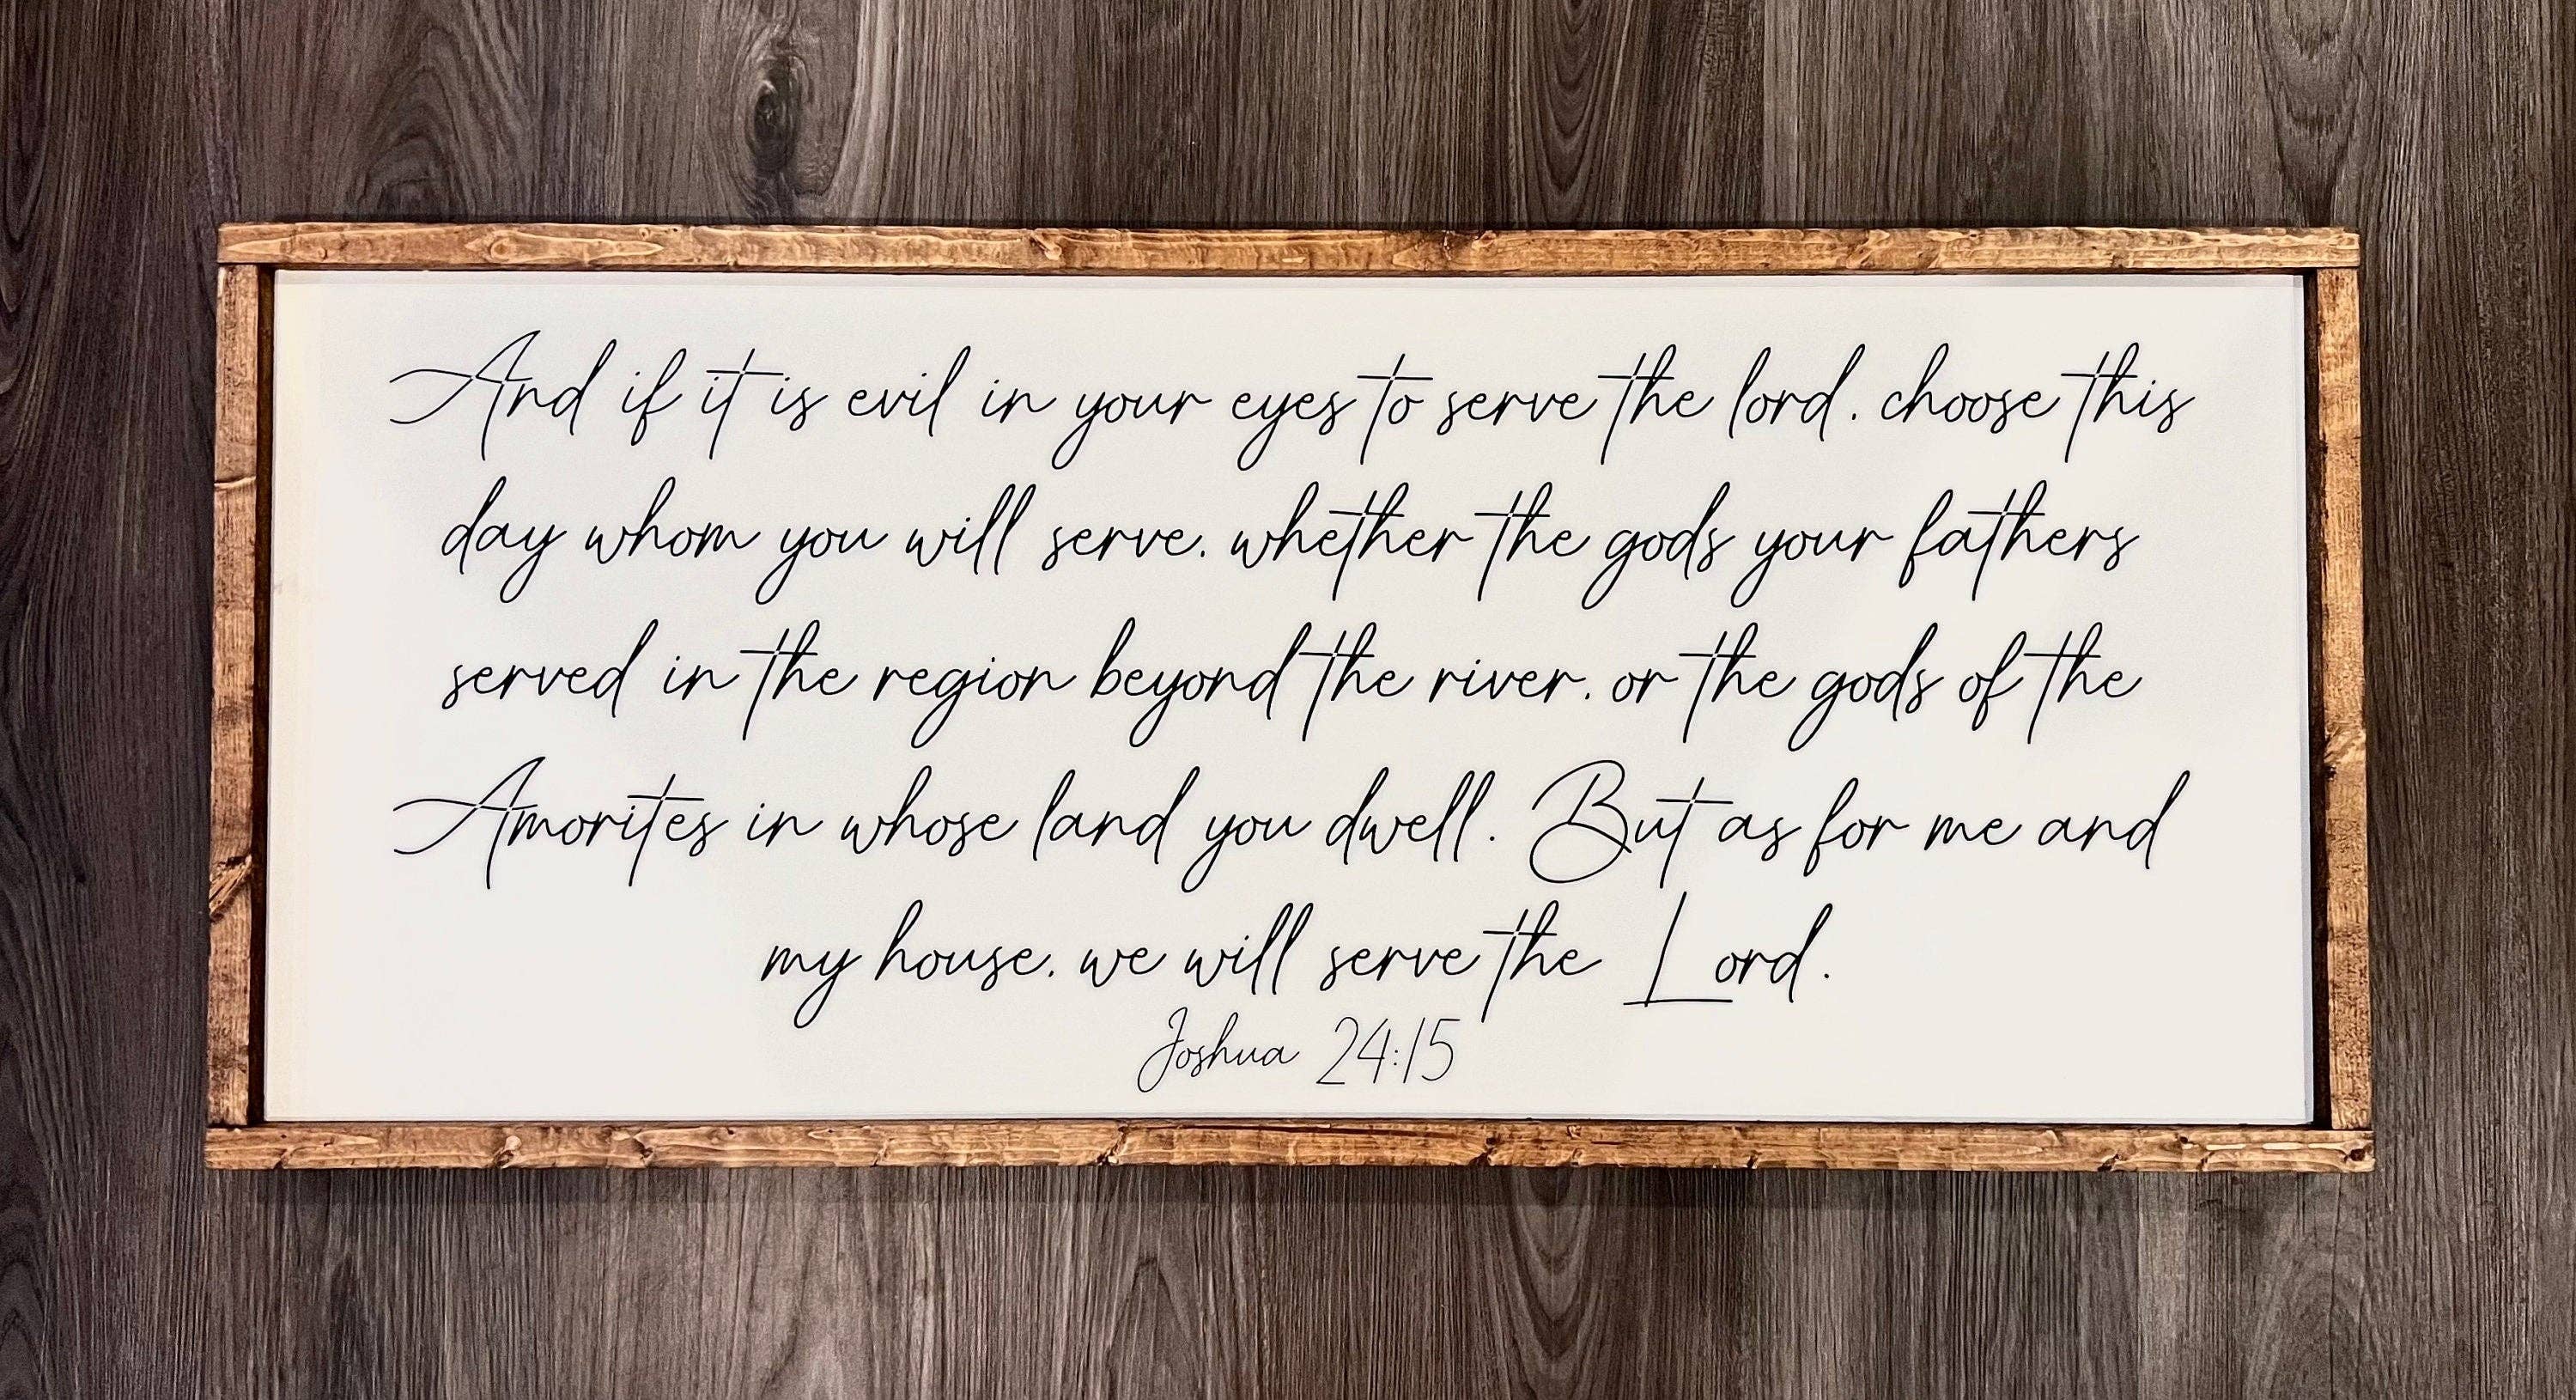 And if it is evil in your eyes to serve the lord. choose this
day whom you will serve. whether the gods your fathers
served in the region beyond the river. or the gods of the
Amorites in whose land you dwell. But as for me and
my house. we will serve the Lord.
Joshua 24:15